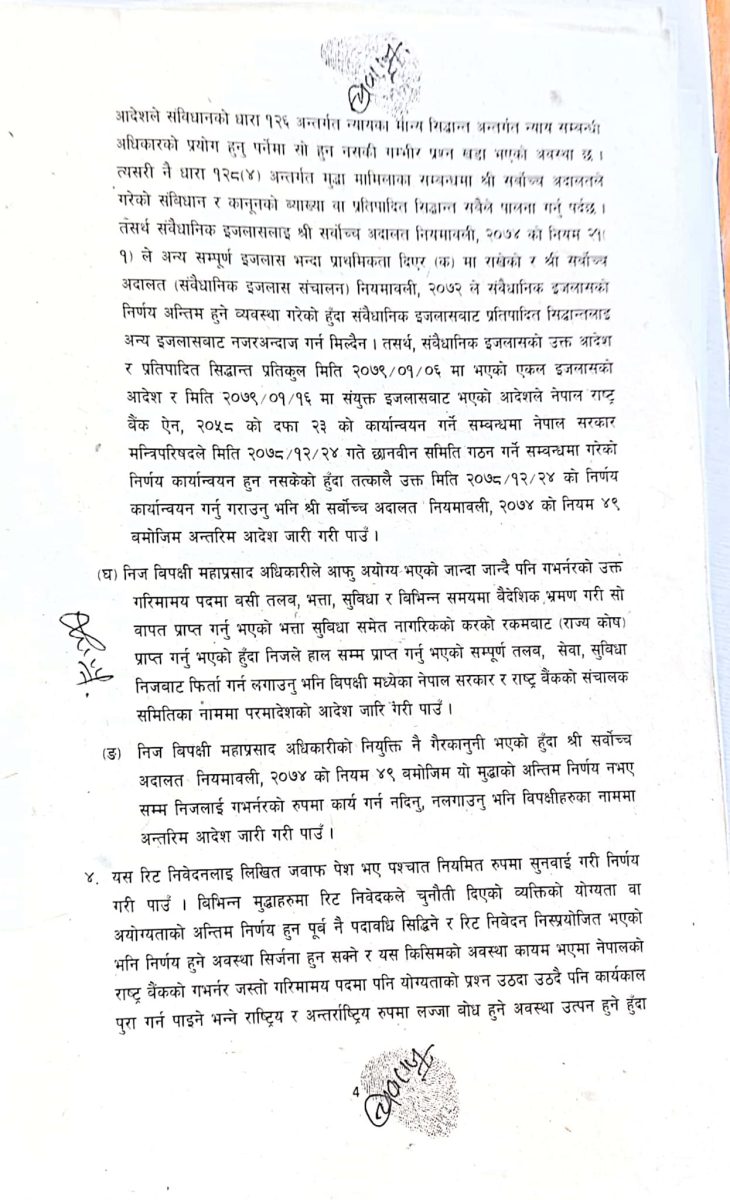 आदेशले संविधानको धारा १२६ अन्तर्गत न्यायका मान्य सिद्धान्त अन्तर्गत न्याय सम्बन्धी
अधिकारको प्रयोग हुनु पर्नेमा सो हुन नसकी गम्भीर प्रश्न खडा भएको अवस्था छ ।
त्यसरी नै धारा १२८(४) अन्तर्गत मुद्धा मामिलाका सम्बन्धमा श्री सर्वोच्च अदालतले
गरेको संविधान र कानूनको व्याख्या वा प्रतिपादित सिद्धान्त सवैले पालना गर्नु पर्दछ ।
तसर्थ संवैधानिक इजलासलाइ श्री सर्वोच्च अदालत नियमावली, २०७४ को नियम २१(
१) ले अन्य सम्पूर्ण इजलास भन्दा प्राथमिकता दिएर (क) मा राखेको र श्री सर्वोच्च
अदालत (संवैधानिक इजलास संचालन) नियमावली, २०७२ ले संवैधानिक इजलासको
निर्णय अन्तिम हुने व्यवस्था गरेको हुँदा संवैधानिक इजलासबाट प्रतिपादित सिद्धान्तलाइ
अन्य इजलासबाट नजरअन्दाज गर्न मिल्दैन । तसर्थ, संवैधानिक इजलासको उक्त आदेश
र प्रतिपादित सिद्धान्त प्रतिकुल मिति २०७९/०१/०६ मा भएको एकल इजलासको
आदेश र मिति २०७९/०१/१६ मा संयुक्त इजलासबाट भएको आदेशले नेपाल राष्ट्र
बैंक ऐन, २०५८ को दफा २३ को कार्यान्वयन गर्ने सम्बन्धमा नेपाल सरकार
मन्त्रिपरिषदले मिति २०७८/१२/२४ गते छानवीन समिति गठन गर्ने सम्बन्धमा गरेको
निर्णय कार्यान्वयन हुन नसकेको हुँदा तत्कालै उक्त मिति २०७८/१२/२४ को निर्णय
कार्यान्वयन गर्नु गराउनु भनि श्री सर्वोच्च अदालत नियमावली, २०७४ को नियम ४९
बमोजिम अन्तरिम आदेश जारी गरी पाउँ ।
(घ) निज विपक्षी महाप्रसाद अधिकारीले आफु अयोग्य भएको जान्दा जान्दै पनि गभर्नरको उक्त
गरिमामय पदमा वसी तलव, भत्ता, सुविधा र विभिन्न समयमा वैदेशिक भ्रमण गरी सो
वापत प्राप्त गर्नु भएको भत्ता सुविधा समेत नागरिकको करको रकमबाट (राज्य कोष)
प्राप्त गर्नु भएको हुँदा निजले हाल सम्म प्राप्त गर्नु भएको सम्पूर्ण तलव, सेवा, सुविधा
निजबाट फिर्ता गर्न लगाउनु भनि विपक्षी मध्येका नेपाल सरकार र राष्ट्र बैंकको संचालक
समितिका नाममा परमादेशको आदेश जारि गरी पाउँ ।
(ङ) निज विपक्षी महाप्रसाद अधिकारीको नियुक्ति नै गैरकानुनी भएको हुँदा श्री सर्वोच्च
अदालत नियमावली, २०७४ को नियम ४९ बमोजिम यो मुद्धाको अन्तिम निर्णय नभए
सम्म निजलाई गभर्नरको रुपमा कार्य गर्न नदिनु, नलगाउनु भनि विपक्षीहरुका नाममा
अन्तरिम आदेश जारी गरी पाउँ ।
४. यस रिट निवेदनलाइ लिखित जवाफ पेश भए पश्चात नियमित रुपमा सुनवाई गरी निर्णय
गरी पाउँ । विभिन्न मुद्धाहरुमा रिट निवेदकले चुनौती दिएको व्यक्तिको योग्यता वा
अयोग्यताको अन्तिम निर्णय हुन पूर्व नै पदावधि सिद्धिने र रिट निवेदन निस्प्रयोजित भएको
भनि निर्णय हुने अवस्था सिर्जना हुन सक्ने र यस किसिमको अवस्था कायम भएमा नेपालको
राष्ट्र बैंकको गभर्नर जस्तो गरिमामय पदमा पनि योग्यताको प्रश्न उठदा उठदै पनि कार्यकाल
पुरा गर्न पाइने भन्ने राष्ट्रिय र अन्तर्राष्ट्रिय रुपमा लज्जा बोध हुने अवस्था उत्पन हुने हुँदा
4